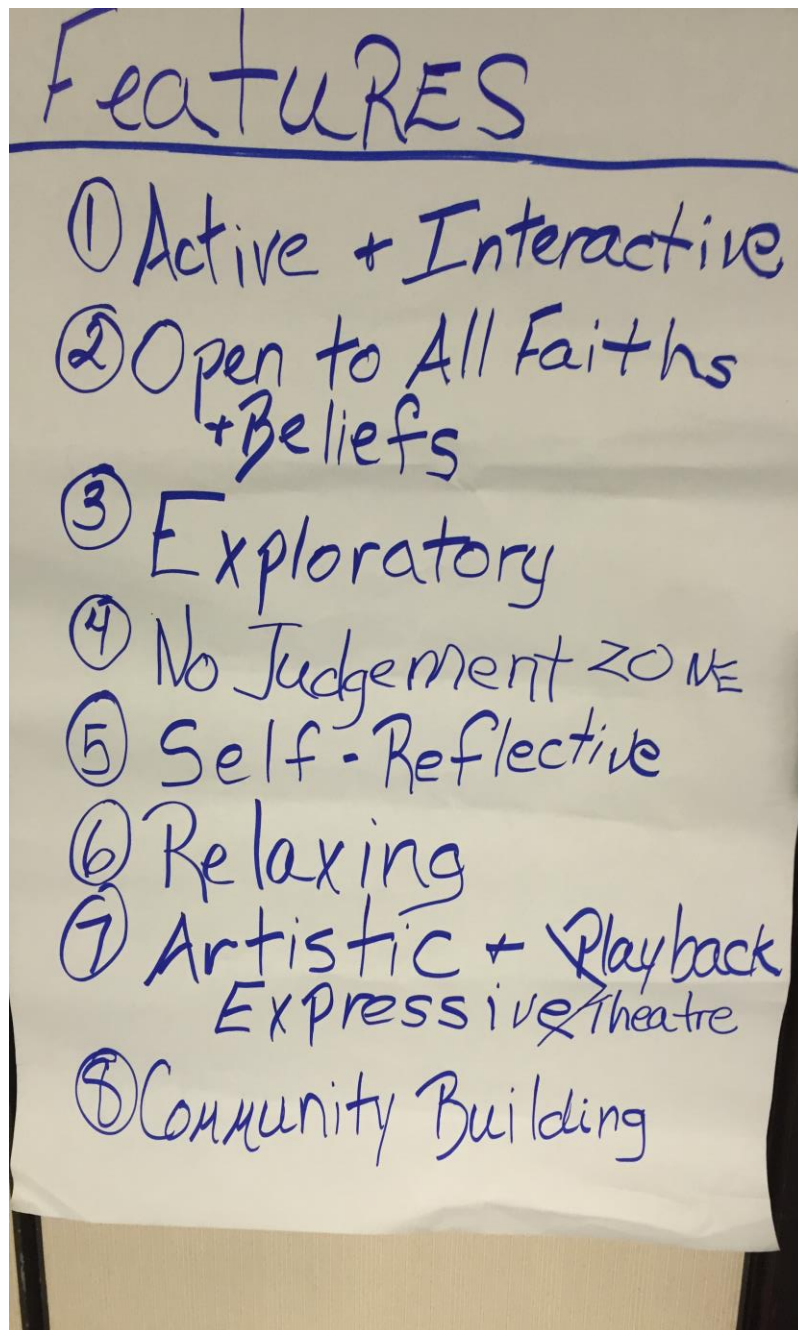 FeatuRES
① Active + Interactive
② Open to All Faiths
+Beliefs
③ Exploratory
④ No Judgement ZONE
⑤ Self-Reflective
⑥ Relaxing
⑦ Artistic + Playback
Expressive Theatre
⑧ Community Building